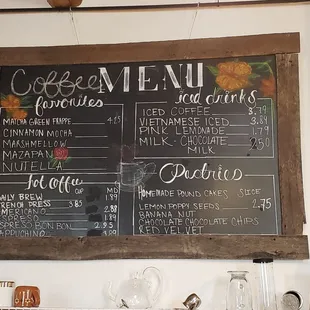 Coffee MENU
favorites
MATCHA GREEN FRAPPE 4.95
CINNAMON MOCHA
MARSHMELLOW
MAZAPAN
NUTELLA
Hot Coffee
CUP MD
DAILY BREW 1.89
FRENCH PRESS 3.85
AMERICANO
ESPRESSO 1.89
ESPRESSO BON BON 2.95
CAPPUCHINO
iced drinks
ICED COFFEE 3.79
VIETNAMESE ICED 3.89
PINK LEMONADE 1.79
MILK - CHOCOLATE 2.50
MILK
Pastries
HOMEMADE POUNDS CAKES SLICE
LEMON POPPY SEEDS 2.75
BANANA NUT
CHOCOLATE CHOCOLATE CHIPS
RED VELVET